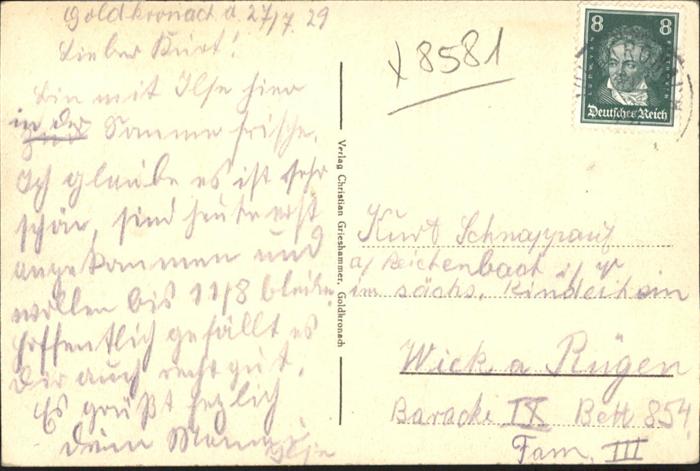 Goldkronach d. 27/7. 29
Lieber Kurt!
Bin mit Ilse hier
in der Sommerfrische.
Ich glaube es ist sehr
schön, sind heute erst
angekommen und
wollen bis 11/8 bleiben
hoffentlich gefällt es
Dir auch recht gut.
Es grüßt herzlich
Deine Mama
Ilse
Verlag Christian Grieshammer, Goldkronach
x 8581
8 8
LUDWIG VAN BEETHOVEN
Deutsches Reich
Kurt Schnappauf
a/ Reichenbach i/V
im sächs. Kinderheim
Wiek a Rügen
Baracke IX Bett 854
Fam. III